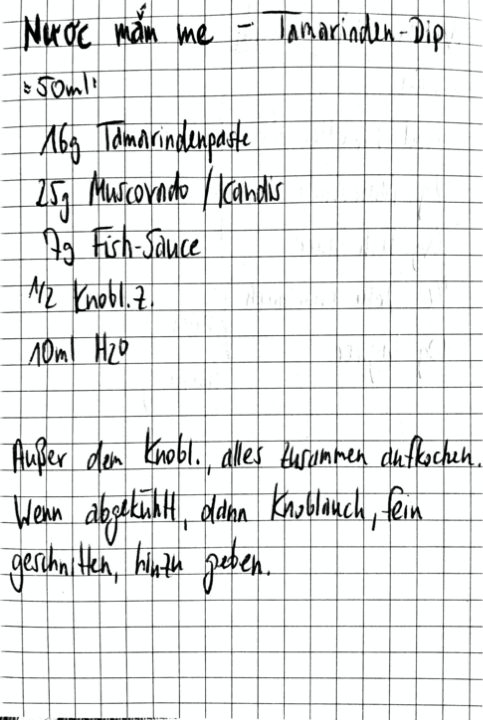 Nước mắm me - Tamarinden-Dip
≈50ml:
16g Tamarindenpaste
25g Muscovado / Kandis
7g Fish-Sauce
1/2 Knobl.z.
10ml H2O
Außer dem Knobl., alles zusammen aufkochen.
Wenn abgekühlt, dann Knoblauch, fein
geschnitten, hinzu geben.